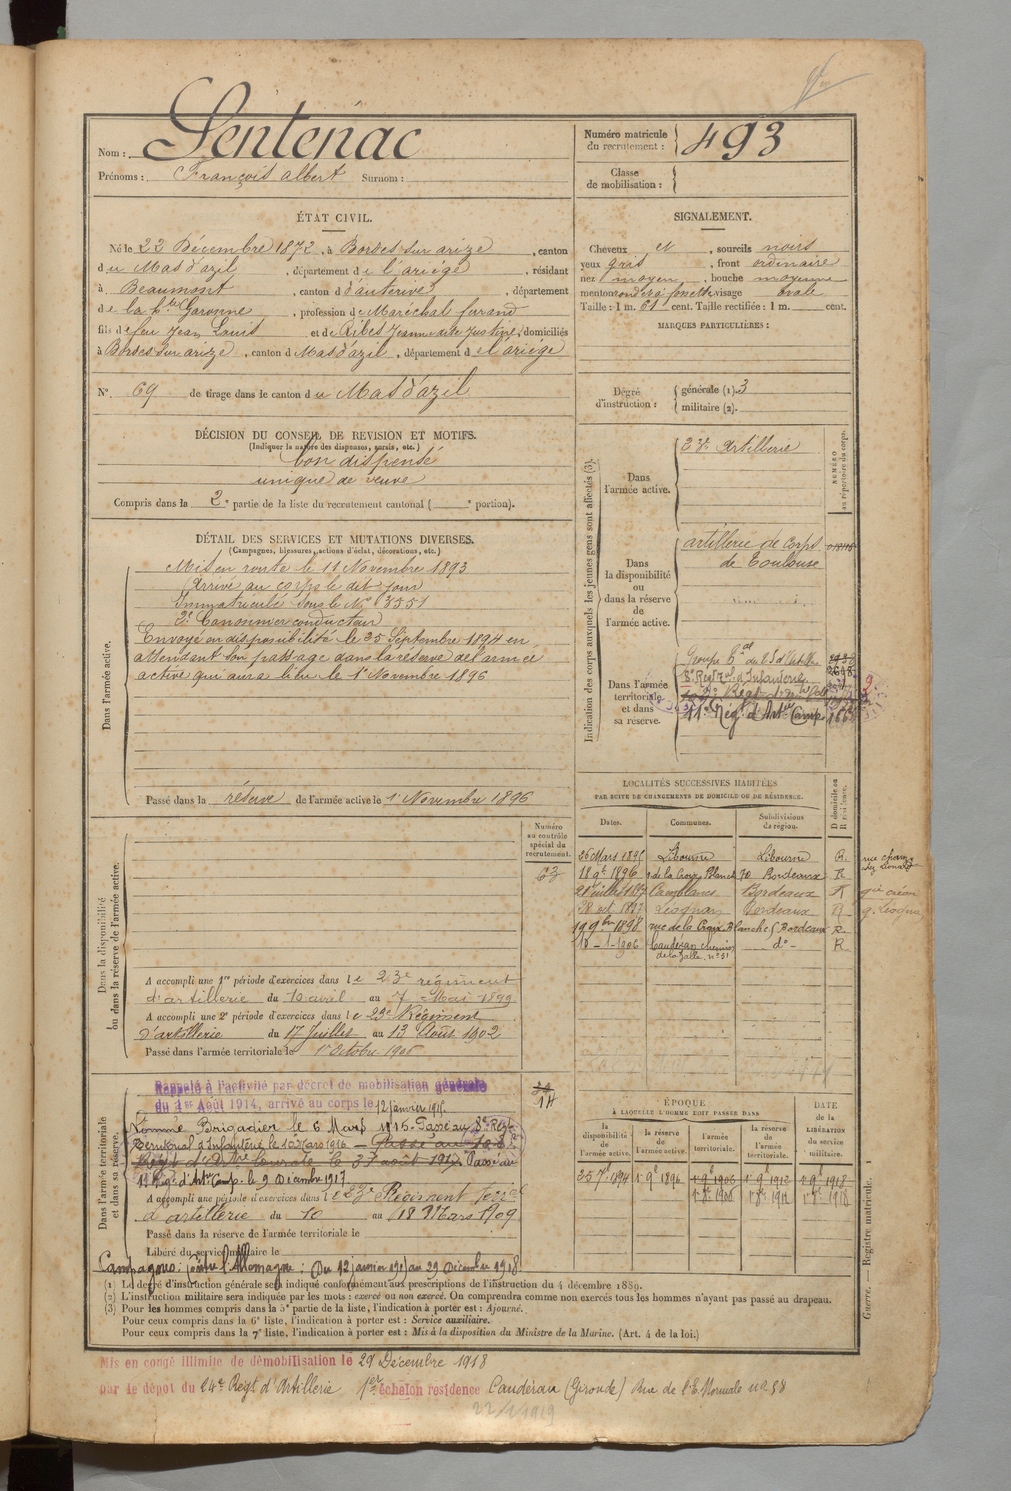 Nom : Sentenac
Prénoms : François Albert Surnom :
Numéro matricule du recrutement : 493
Classe de mobilisation :
ÉTAT CIVIL.
Né le 22 Décembre 1872, à Bordes sur arize, canton
du Mas d'azil, département de l'ariège, résidant
à Beaumont, canton d'auterive, département
de la hte Garonne, profession de Maréchal ferrand
fils de feu Jean Louis et de Ribes Jeanne Justine, domiciliés
à Bordes sur arize, canton d Mas d'azil, département de l'ariège
N° 69 de tirage dans le canton du Mas d'azil
DÉCISION DU CONSEIL DE REVISION ET MOTIFS.
(Indiquer la nature des dispenses, sursis, etc.)
bon dispensé
unique de veuve
Compris dans la 2e partie de la liste du recrutement cantonal ( e portion).
SIGNALEMENT.
Cheveux et, sourcils noirs
yeux gris, front ordinaire
nez moyen, bouche moyenne
menton rond et à fossette visage ovale
Taille : 1 m. 61 cent. Taille rectifiée : 1 m. cent.
MARQUES PARTICULIÈRES :
Degré d'instruction : générale (1). 3
militaire (2).
DÉTAIL DES SERVICES ET MUTATIONS DIVERSES.
(Campagnes, blessures, actions d'éclat, décorations, etc.)
Dans l'armée active.
Mis en route le 11 Novembre 1893
Arrivé au corps le dit jour
Immatriculé sous le N° 3551
2e Canonnier conducteur
Envoyé en disponibilité le 25 Septembre 1894 en
attendant son passage dans la réserve de l'armée
active qui aura lieu le 1er Novembre 1896
Passé dans la réserve de l'armée active le 1er Novembre 1896
Indication des corps auxquels les jeunes gens sont affectés (3).
NUMÉRO au répertoire du corps.
Dans l'armée active.
23e Artillerie
Dans la disponibilité ou dans la réserve de l'armée active.
artillerie de Corps
de Toulouse
Dans l'armée territoriale et dans sa réserve.
8e Regt Tal d'Infanterie
11e Regt d'Artie Camp
LOCALITÉS SUCCESSIVES HABITÉES
PAR SUITE DE CHANGEMENTS DE DOMICILE OU DE RÉSIDENCE.
Dates. Communes. Subdivisions de région. D domicile ou R résidence.
26 Mars 1895 Libourne Libourne R.
18 9e 1896 r de la Croix Blanche 70 Bordeaux R
Bordeaux R
28 oct 1897 Léognan Bordeaux R
19 9bre 1898 rue de la Croix Blanche Bordeaux R.
18-1-1906 Caudéran chemin de la Salle n° 51 d°- R
Dans la disponibilité ou dans la réserve de l'armée active.
Numéro au contrôle spécial du recrutement.
63
A accompli une 1re période d'exercices dans le 23e régiment
d'artillerie du 10 avril au 7 Mai 1899
A accompli une 2e période d'exercices dans le 23e Régiment
d'artillerie du 17 Juillet au 13 Août 1902
Passé dans l'armée territoriale le 1er Octobre 1906
Dans l'armée territoriale et dans sa réserve.
Rappelé à l'activité par décret de mobilisation générale
du 1er Août 1914, arrivé au corps le 12 janvier 1915.
14
Nommé Brigadier le 6 Mars 1915. Passé au 8e Regt
Territorial d'Infanterie le 10 Mars 1916 – Passé au
Régt d'Artie lourde le 31 août 1917. Passé au
11e Rég. d'Artie Camp. le 9 Décembre 1917
A accompli une période d'exercices dans le 23e Régiment territ
d'artillerie du 10 au 18 Mars 1909
Passé dans la réserve de l'armée territoriale le
Libéré du service militaire le
Campagnes : contre l'Allemagne : Du 12 janvier 1915 au 29 Décembre 1918.
ÉPOQUE
À LAQUELLE L'HOMME DOIT PASSER DANS
la disponibilité de l'armée active. la réserve de l'armée active. l'armée territoriale. la réserve de l'armée territoriale.
DATE de la LIBÉRATION du service militaire.
25 7e 1894 1er 9e 1896 1er 9e 1906 1er 9e 1912 1er 9e 1918
(1) Le degré d'instruction générale sera indiqué conformément aux prescriptions de l'instruction du 4 décembre 1889.
(2) L'instruction militaire sera indiquée par les mots : exercé ou non exercé. On comprendra comme non exercés tous les hommes n'ayant pas passé au drapeau.
(3) Pour les hommes compris dans la 5e partie de la liste, l'indication à porter est : Ajourné.
Pour ceux compris dans la 6e liste, l'indication à porter est : Service auxiliaire.
Pour ceux compris dans la 7e liste, l'indication à porter est : Mis à la disposition du Ministre de la Marine. (Art. 4 de la loi.)
Guerre. — Registre matricule.
Mis en congé illimité de démobilisation le 29 Décembre 1918
par le dépôt du 24e Regt d'Artillerie 1er échelon résidence Caudéran (Gironde) Rue de l'E. Normale n° 58
22/1/1919